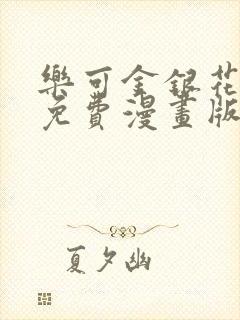 樂可金銀花
免費漫畫版
夏夕幽